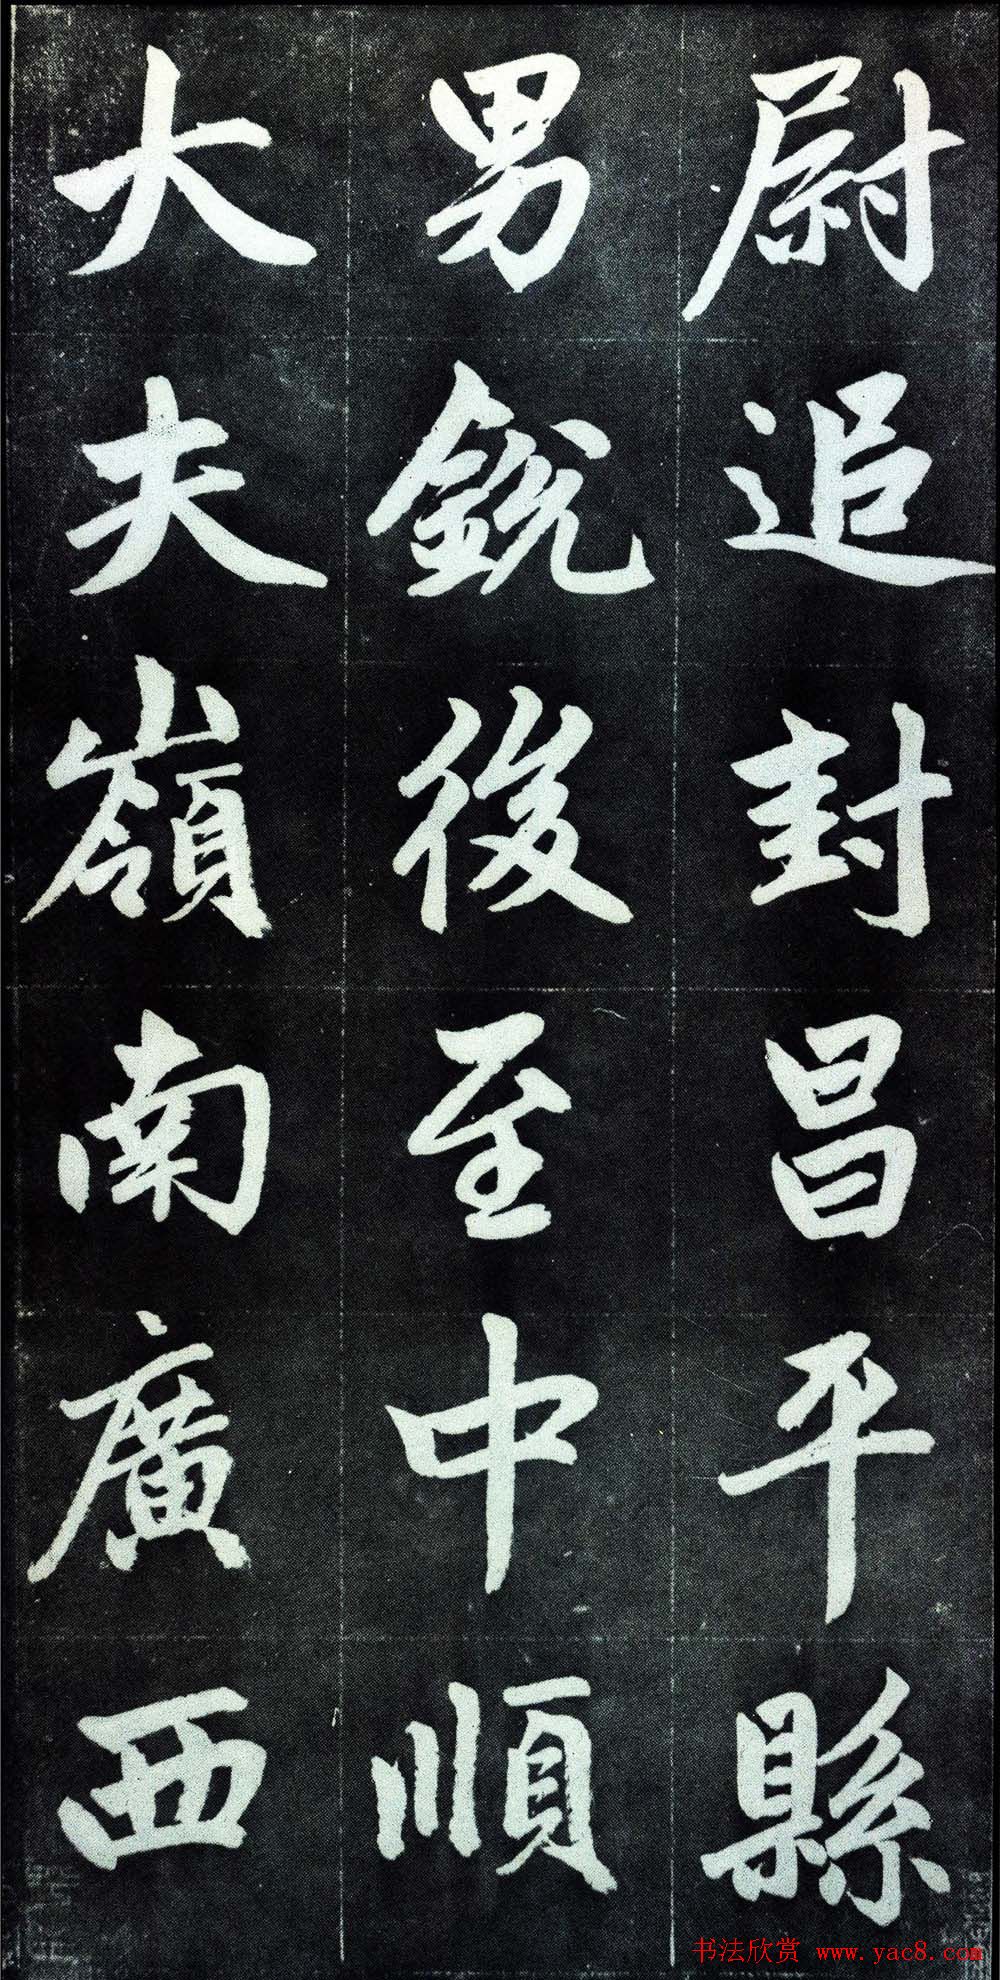 尉追封昌平縣
男銳後至中順
大夫嶺南廣西
书法欣赏 www.yac8.com